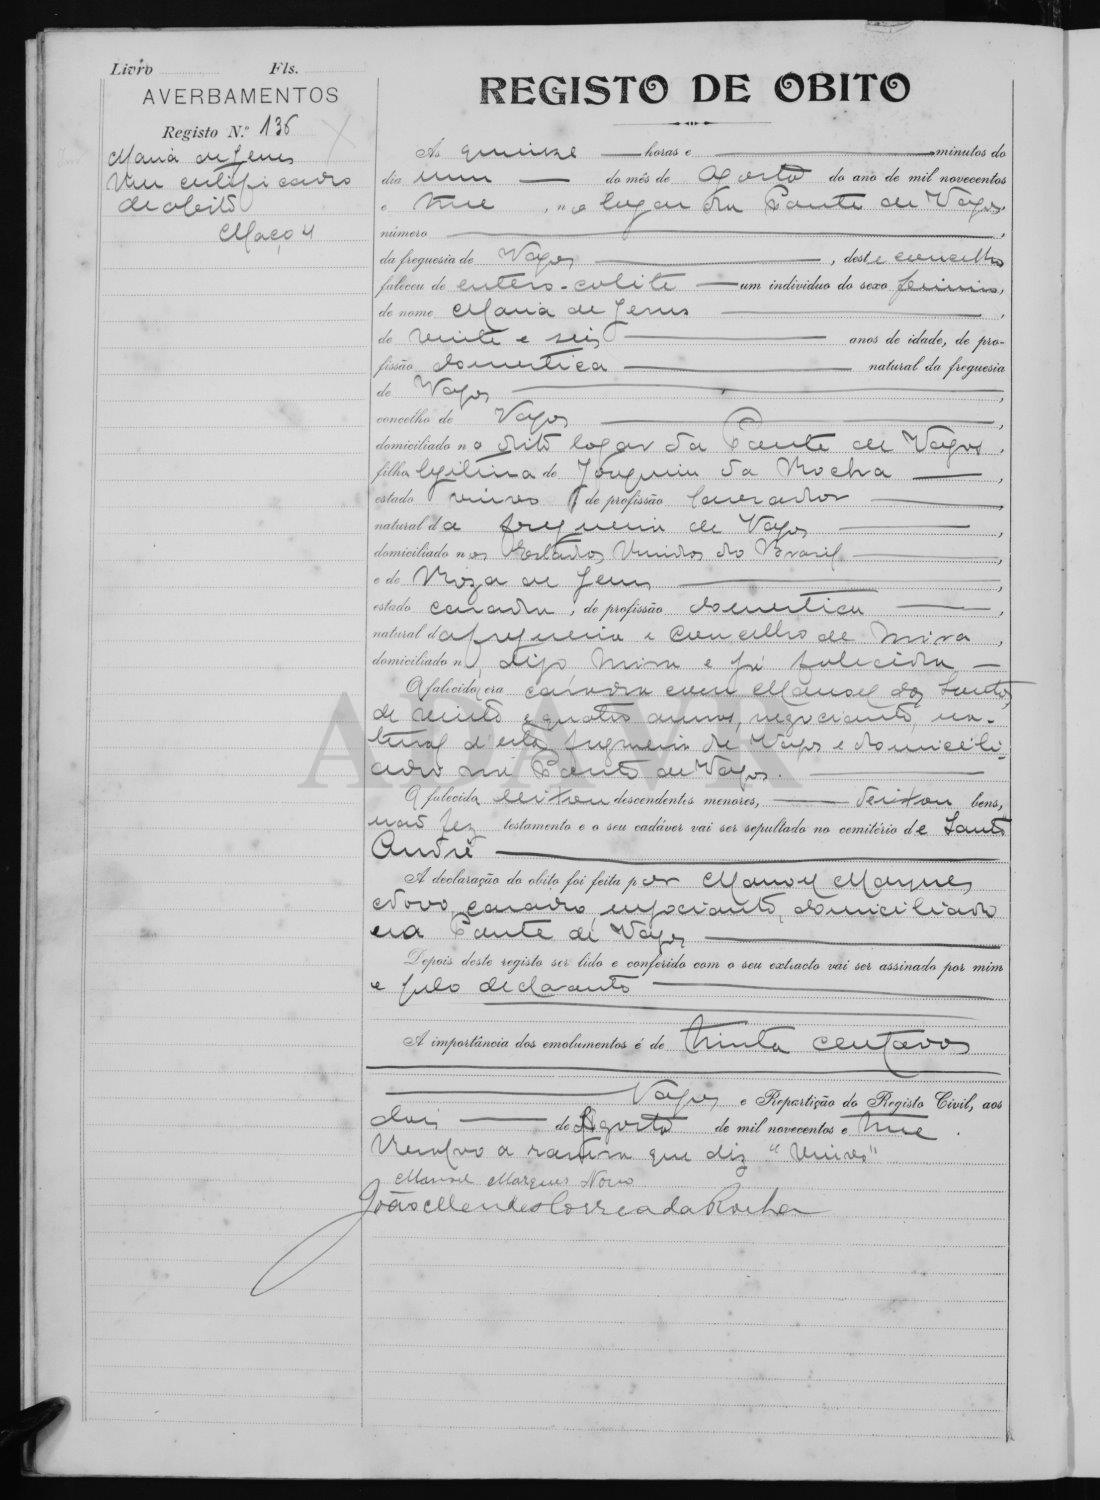 Livro Fls.
AVERBAMENTOS
Registo N.º 136
Maria de Jesus
Um certificado
de obito
Maço 4
REGISTO DE OBITO
As quinze horas e minutos do
dia um do mês de Agosto do ano de mil novecentos
e , no lugar da Ponte de Vagos,
número ,
da freguesia de Vagos , deste concelho
faleceu de entero-colite um individuo do sexo feminino,
de nome Maria de Jesus ,
de vinte e seis anos de idade, de pro-
fissão domestica natural da freguesia
de Vagos ,
concelho de Vagos ,
domiciliado no dito logar da Ponte de Vagos,
filha legitima de Joaquim da Rocha ,
estado viuvo , de profissão lavrador ,
natural da freguesia de Vagos ,
domiciliado nos Estados Unidos do Brasil ,
e de Roza de Jesus ,
estado casada, de profissão domestica ,
natural da freguesia e concelho de Mira,
domiciliado n , digo Mira e já falecida
O falecido era casada com Manoel dos Santos,
de vinte e quatro annos, negociante, na-
tural d'esta freguesia de Vagos e domicili-
ado na Ponte de Vagos.
O falecida deixou descendentes menores, deixou bens,
não fez testamento e o seu cadáver vai ser sepultado no cemitério de Santo
André
A declaração do obito foi feita por Manoel Marques
Novo, casado, negociante, domiciliado
na Ponte de Vagos
Depois deste registo ser lido e conferido com o seu extracto vai ser assinado por mim
e pelo declarante
A importância dos emolumentos é de trinta centavos
Vagos e Repartição do Registo Civil, aos
dois de Agosto de mil novecentos e .
Resalvo a rasura que diz "viuvo"
Manoel Marques Novo
João Mendes Correa da Rocha
ADAVR